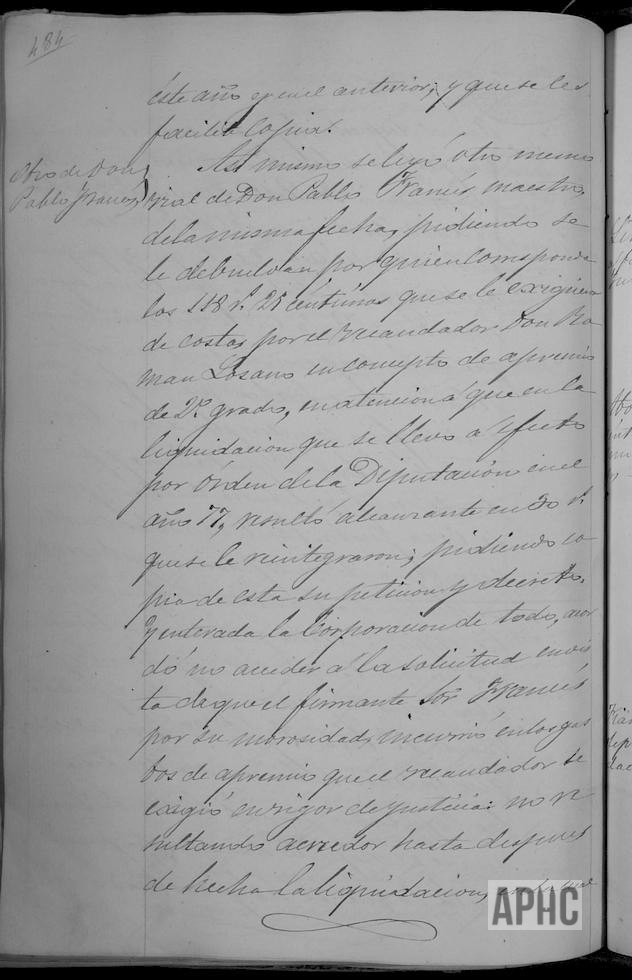 484
éste año y en el anterior; y que se les
facilite copia.
Otro de Don
Pablo Francés
Asi mismo se leyó otro memo
rial de Don Pablo Francés maestro,
de la misma fecha, pidiendo se
le debuelvan por quien corresponda
los 118 r.^s 25 céntimos que se le exigieron
de costas por el recaudador Don Ro
man Losano en concepto de apremio
de 2.º grado, en atencion á que en la
liquidacion que se llevó á efecto
por órden de la Diputación en el
año 77, resultó alcanzante en 30 r.^s
que se le reintegraron; pidiendo co
pia de esta su peticion y decreto.
Y enterada la Corporacion de todo, acor
dó no acceder á la solicitud en vis
ta de que el firmante Sor. Francés
por su morosidad, incurrió en los gas
tos de apremio que el recaudador le
exigió en rigor de justicia: no re
sultando acreedor hasta despues
de hecha la liquidacion,
APHC